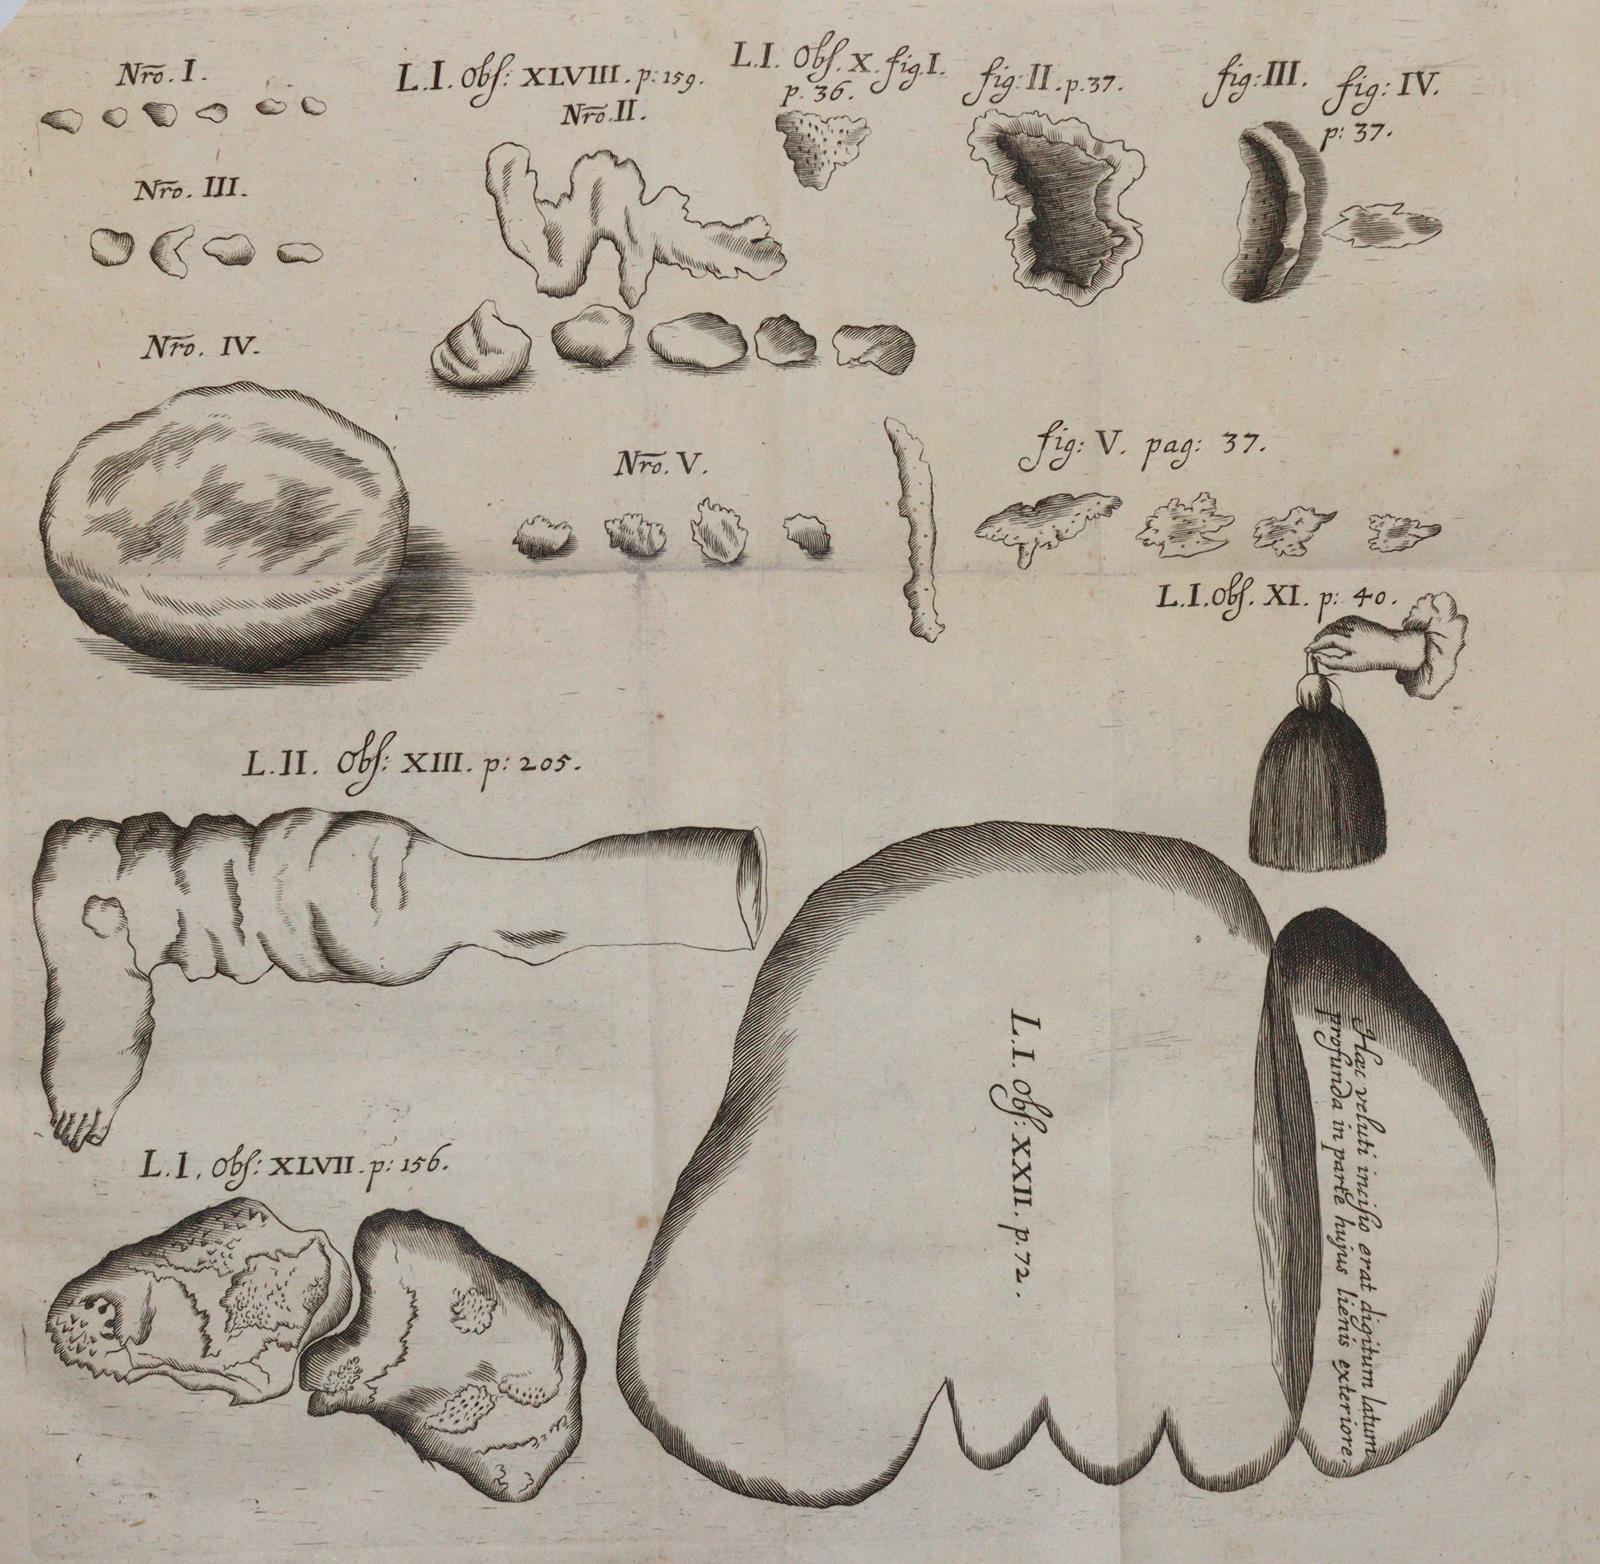 Nr̄o. I.
L. I. Obs: XLVIII. p: 159.
Nr̄o. II.
L. I. Obs. X. fig. I.
p. 36.
fig: II. p. 37.
fig: III.
fig: IV.
p: 37.
Nr̄o. III.
Nr̄o. IV.
Nr̄o. V.
fig: V. pag: 37.
L. I. Obs. XI. p: 40.
L. II. Obs: XIII. p: 205.
L. I. Obs: XXII. p. 72.
Hæc veluti incisio erat digitum latum
profunda in parte hujus lienis exteriore.
L. I. Obs: XLVII. p: 156.